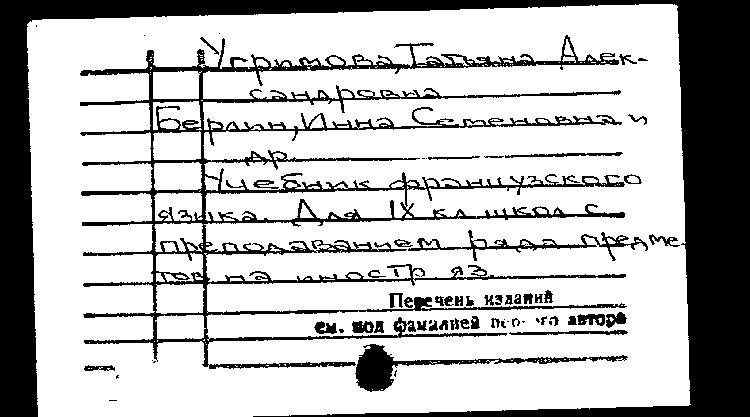 Угримова, Татьяна Алек-
сандровна
Берлин, Инна Семеновна и
др.
Учебник французского
языка. Для IX кл. школ с
преподаванием ряда предме-
тов на иностр. яз.
Перечень изданий
см. под фамилией первого автора